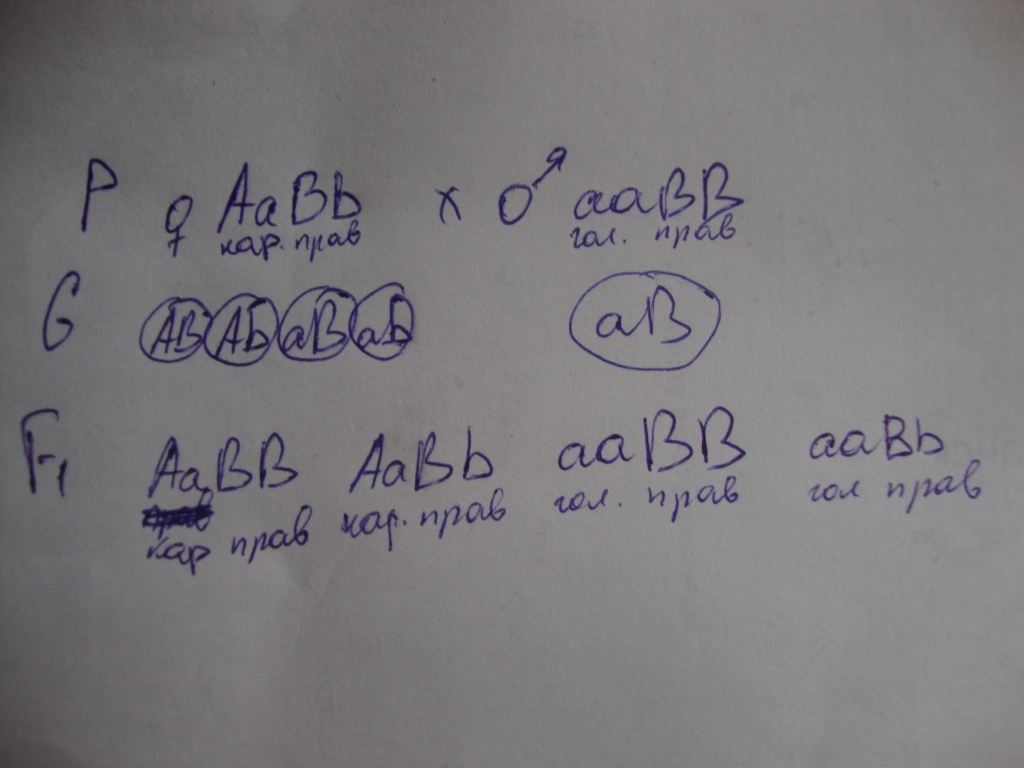 P ♀ AaBb x ♂ aaBB
кар. прав гол. прав
G AB Ab aB ab aB
F1 AaBB AaBb aaBB aaBb
кар прав кар. прав гол. прав гол прав